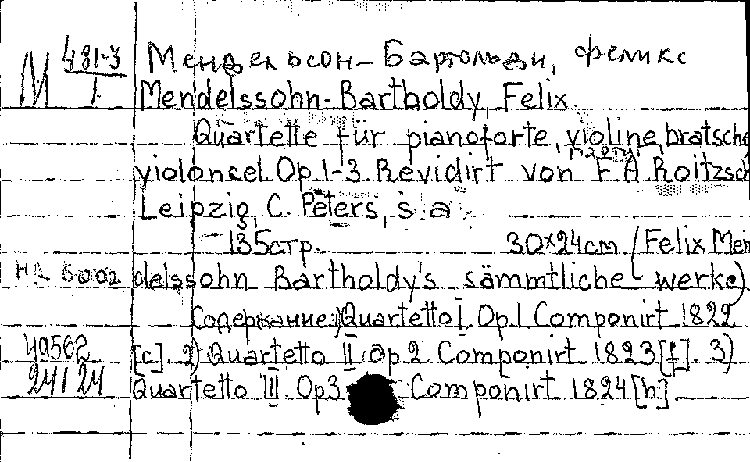 М 481-3/1 Мендельсон-Бартольди, Феликс
Mendelssohn-Bartholdy Felix.
Quartette für pianoforte, violine, bratsche
violoncel. Op. 1-3. Revidirt von F. A. Roitzsch
Leipzig, C. Peters, s. a.
135 стр. 30×24 cm (Felix Men
delssohn Bartholdy's sämmtliche werke)
Содержание: 1) Quartetto I. Op. 1 Componirt 1822
[c]. 2) Quartetto II Op. 2 Componirt 1823 [f]. 3)
Quartetto III. Op 3 Componirt 1824 [h]
40562
24/24